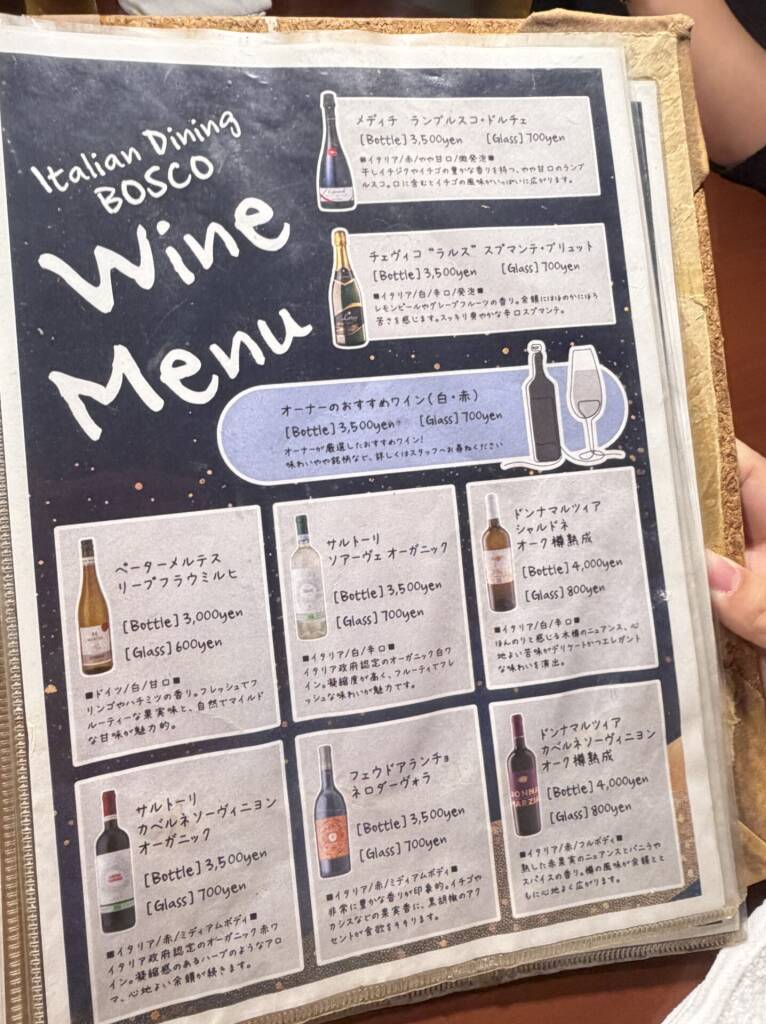 Italian Dining
BOSCO
Wine
Menu
メディチ ランブルスコ・ドルチェ
[Bottle] 3,500yen [Glass] 700yen
■イタリア/赤/やや甘口/微発泡■
干しイチジクやイチゴの豊かな香りを持つ、やや甘口のランブ
ルスコ。口に含むとイチゴの風味がいっぱいに広がります。
チェヴィコ “ラルス” スプマンテ・ブリュット
[Bottle] 3,500yen [Glass] 700yen
■イタリア/白/辛口/発泡■
レモンピールやグレープフルーツの香り。余韻にはほのかにほろ
苦さを感じます。スッキリ爽やかな辛口スプマンテ。
オーナーのおすすめワイン(白・赤)
[Bottle] 3,500yen [Glass] 700yen
オーナーが厳選したおすすめワイン!
味わいやや銘柄など、詳しくはスタッフへお尋ねください
ペーターメルテス
リープフラウミルヒ
[Bottle] 3,000yen
[Glass] 600yen
■ドイツ/白/甘口■
リンゴやハチミツの香り。フレッシュでフ
ルーティーな果実味と、自然でマイルド
な甘味が魅力的。
サルトーリ
ソアーヴェ オーガニック
[Bottle] 3,500yen
[Glass] 700yen
■イタリア/白/辛口■
イタリア政府認定のオーガニック白ワ
イン。凝縮度が高く、フルーティでフレ
ッシュな味わいが魅力です。
ドンナマルツィア
シャルドネ
オーク樽熟成
[Bottle] 4,000yen
[Glass] 800yen
■イタリア/白/辛口■
ほんのりと感じる木樽のニュアンス、心
地よい苦味がデリケートかつエレガント
な味わいを演出。
サルトーリ
カベルネソーヴィニヨン
オーガニック
[Bottle] 3,500yen
[Glass] 700yen
■イタリア/赤/ミディアムボディ■
イタリア政府認定のオーガニック赤ワ
イン。凝縮感のあるハーブのようなアロ
マ、心地よい余韻が続きます。
フェウドアランチョ
ネロダーヴォラ
[Bottle] 3,500yen
[Glass] 700yen
■イタリア/赤/ミディアムボディ■
非常に豊かな香りが印象的。イチゴや
カシスなどの果実香に、黒胡椒のアク
セントが食欲をそそります。
ドンナマルツィア
カベルネソーヴィニヨン
オーク樽熟成
[Bottle] 4,000yen
[Glass] 800yen
■イタリア/赤/フルボディ■
熟した赤果実のニュアンスとバニラや
スパイスの香り。樽の風味が余韻とと
もに心地よく広がります。